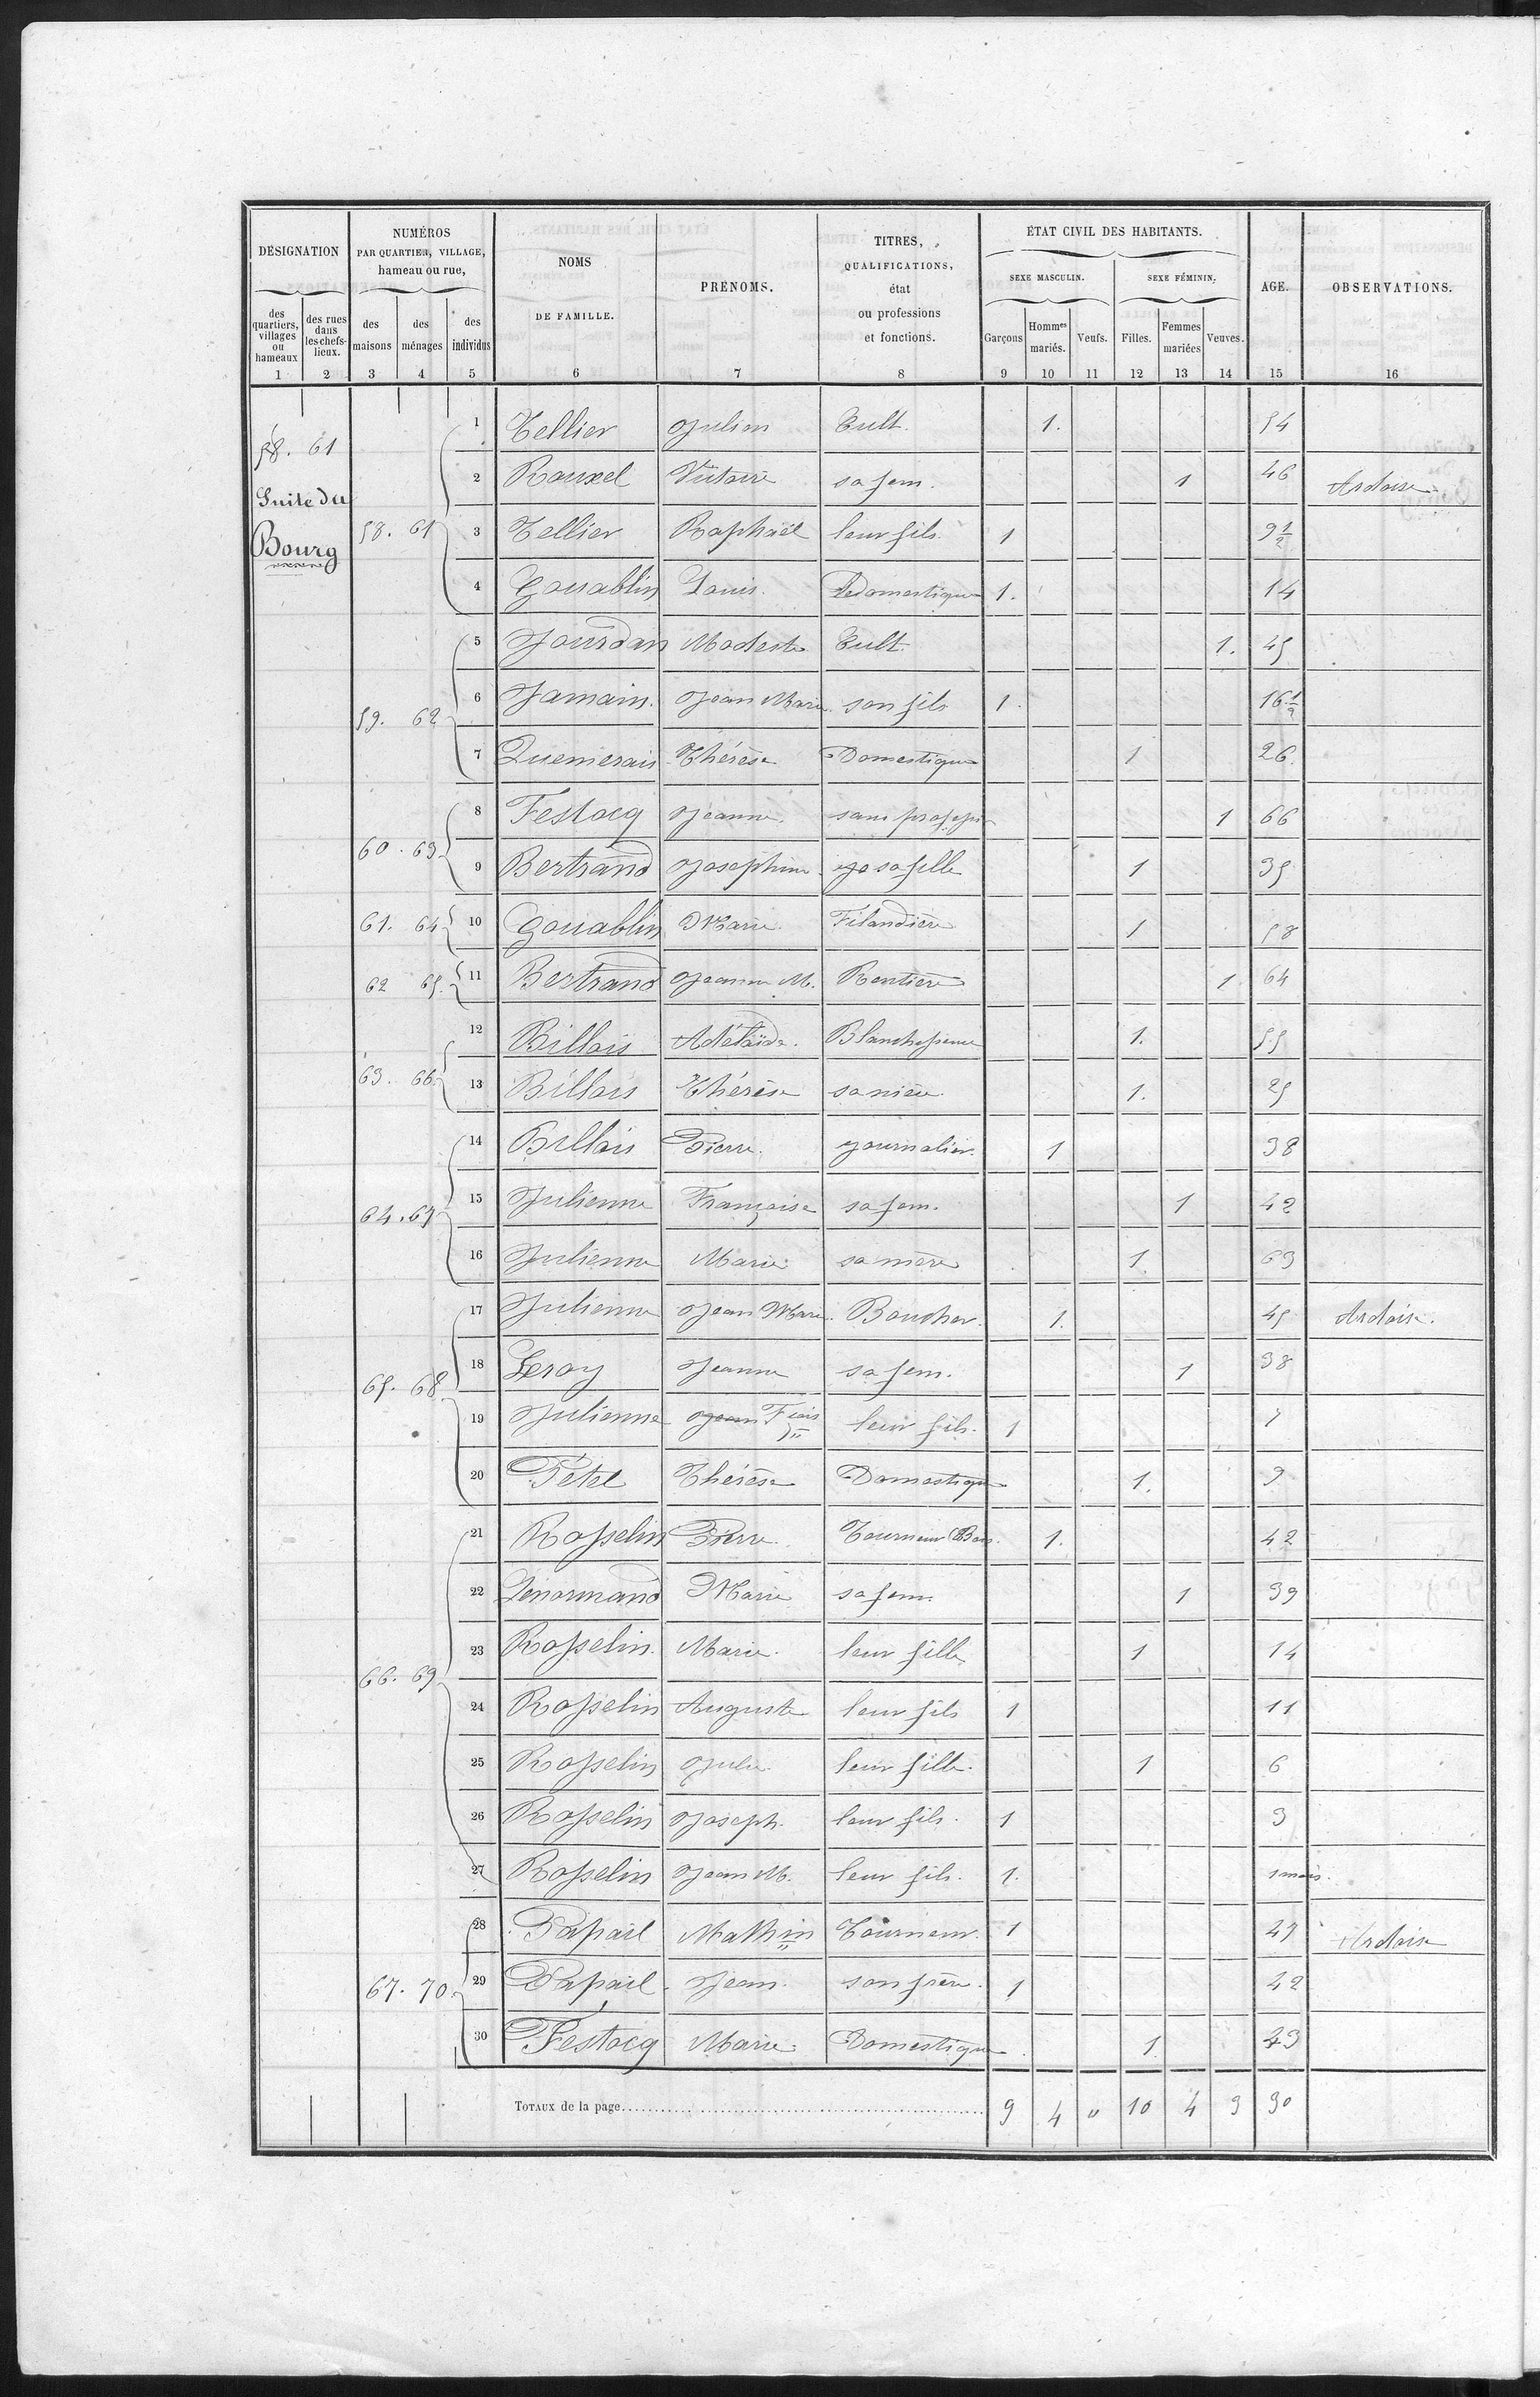 DÉSIGNATION
NUMÉROS PAR QUARTIER, VILLAGE, hameau ou rue,
NOMS DE FAMILLE.
PRÉNOMS.
TITRES, QUALIFICATIONS, état ou professions et fonctions.
ÉTAT CIVIL DES HABITANTS.
AGE.
OBSERVATIONS.
SEXE MASCULIN. SEXE FÉMININ.
des quartiers, villages ou hameaux
des rues dans les chefs-lieux.
des maisons
des ménages
des individus
Garçons Hommes mariés. Veufs. Filles. Femmes mariées Veuves.
1 2 3 4 5 6 7 8 9 10 11 12 13 14 15 16
58. 61
Suite du
Bourg
1 Tellier Julien Cult. 1. 54
2 Rouxel sa fem. 1 46 Ardoise
58. 61 3 Tellier Raphaël leur fils. 1 9 1/2
4 Gouablin Louis. Domestique 1. 14
5 Jourdan Modeste Cult. 1. 45
59. 62 6 Jamain. Jean Marie son fils 1. 16 1/2
7 Quemerais Thérèse Domestique 1 26.
8 Festocq Jeanne. sans profession 1 66
60. 63 9 Bertrand Josephine sa fille 1 35
61. 64 10 Gouablin Marie. Filandière 1 58
62 65. 11 Bertrand Jeanne M. Rentière 1 64
12 Billois Adélaïde. Blanchisseuse 1. 55
63. 66. 13 Billois Thérèse sa nièce. 1. 25
14 Billois Pierre. journalier. 1 38
64. 67 15 Julienne Françoise sa fem. 1 42
16 Julienne Marie sa mère 1. 63
17 Julienne Jean Marie. Boucher. 1. 45 Ardoise.
65. 68 18 Leroy Jeanne sa fem. 1 38
19 Julienne Jean Fçois leur fils. 1 7
20 Petel Thérèse Domestique 1. 9
21 Rosselin Pierre. Tourneur (Bois. 1. 42
22 Lenormand Marie sa fem. 1 39
23 Rosselin. Marie. leur fille 1 14
66. 69 24 Rosselin Auguste leur fils 1 11
25 Rosselin Julie. leur fille. 1 6
26 Rosselin Joseph. leur fils. 1 3
27 Rosselin Jean M. leur fils. 1.
28 Papail Mathin Tourneur. 1 Ardoise
67. 70. 29 Papail Jean. son frère. 1 42
30 Festocq Marie. Domestique 1.
TOTAUX de la page 9 4 " 10 4 3 30